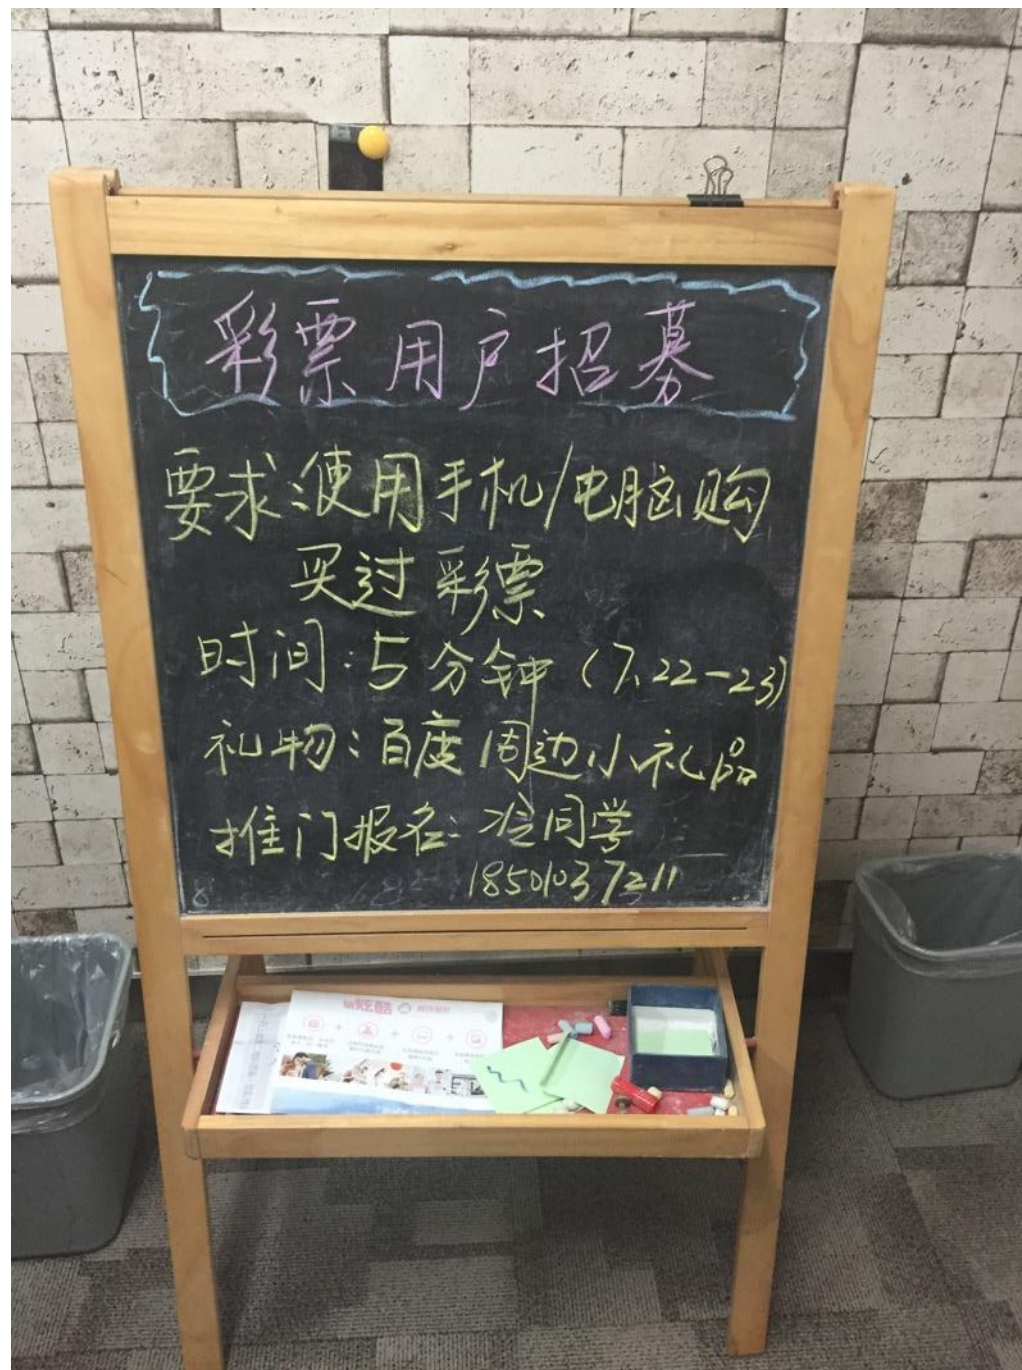 彩票用户招募
要求:使用手机/电脑购
买过彩票
时间:5分钟(7.22-23)
礼物:百度周边小礼品
推门报名:冷同学
18501037211
炫酷